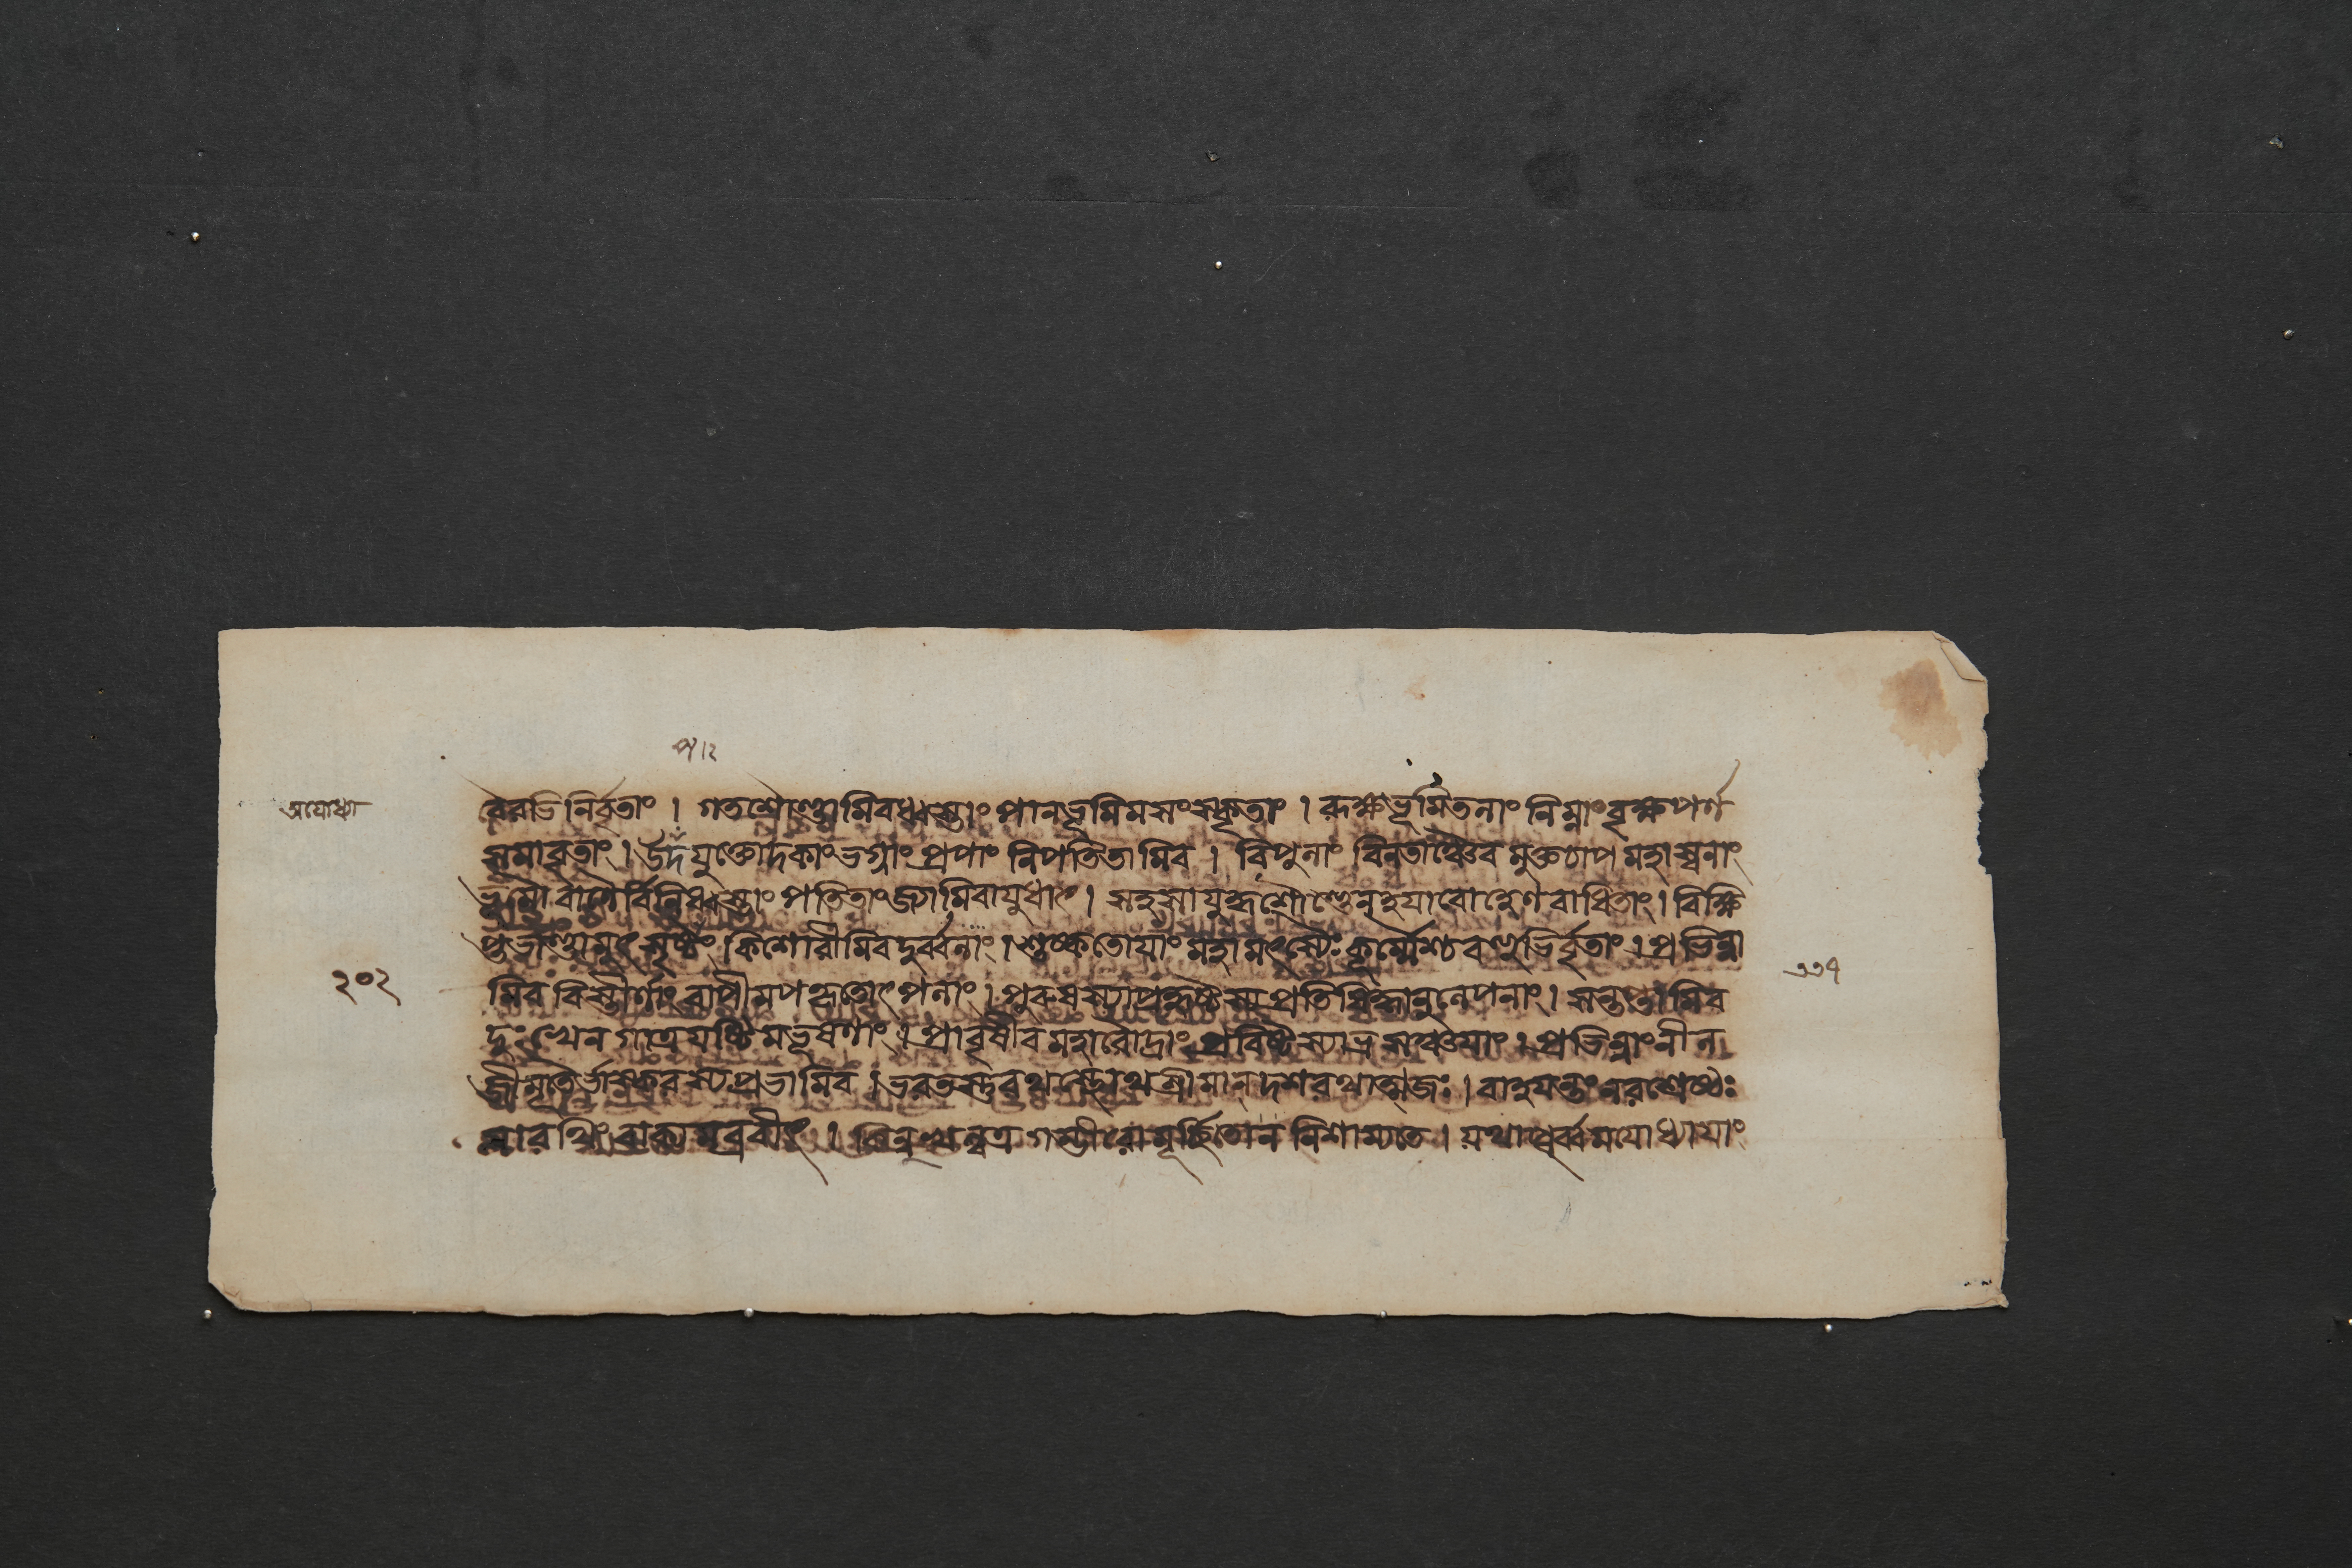 অযোধ্যা
२०२
১১৭
বৈরভিনির্বৃতাং । গতশৌণ্ডামিবধ্বস্তাং পানভূমিমসংস্কৃতাং । বৃক্ষভূমিতলাং নিম্নাং বৃক্ষপর্ণ
সমাবৃতাং । ভগ্নাং প্রপাং নিপতিতামিব । বিপুলাং বিনতাঞ্চৈব মহাস্বনাং
ভূমৌ বাণৈর্বিনিধ্বস্তাং পতিতাং জ্যামিবাযুধাৎ । সহসা যুদ্ধশৌণ্ডেন হযারোহেণ বাধিতাং । বিক্ষি
প্তভাণ্ডামুৎসৃষ্টাং কিশোরীমিবদুর্ব্বলাং । শুষ্কতোযাং মহামৎস্যৈঃ কূর্ম্মৈশ্চ বহুভির্বৃতাং । প্রভিন্না
মিব বিস্তীর্ণাং বাপীমপহৃতোৎপলাং । পুরুষস্যাপ্রহৃষ্টস্য প্রতিষিদ্ধানুলেপনাং । সন্তপ্তামিব
দুঃখেন গাত্রযষ্টিমভূষণাং । প্রাবৃষীব মহারৌদ্রাং প্রবিষ্টস্যাভ্র প্রভিন্নাংনীল
জীমূতৈর্ভাস্করস্যপ্রভামিব । ভরতস্তুরথস্থোথশ্রীমান্ দশরথাত্মজঃ । বাহযন্তং নরশ্রেষ্ঠঃ
সারথিং বাক্যমব্রবীৎ । কিন্নুখল্বত্র গম্ভীরো মূর্চ্ছিতোন নিশাম্যতে । যথাপূর্ব্বমযোধ্যাযাং